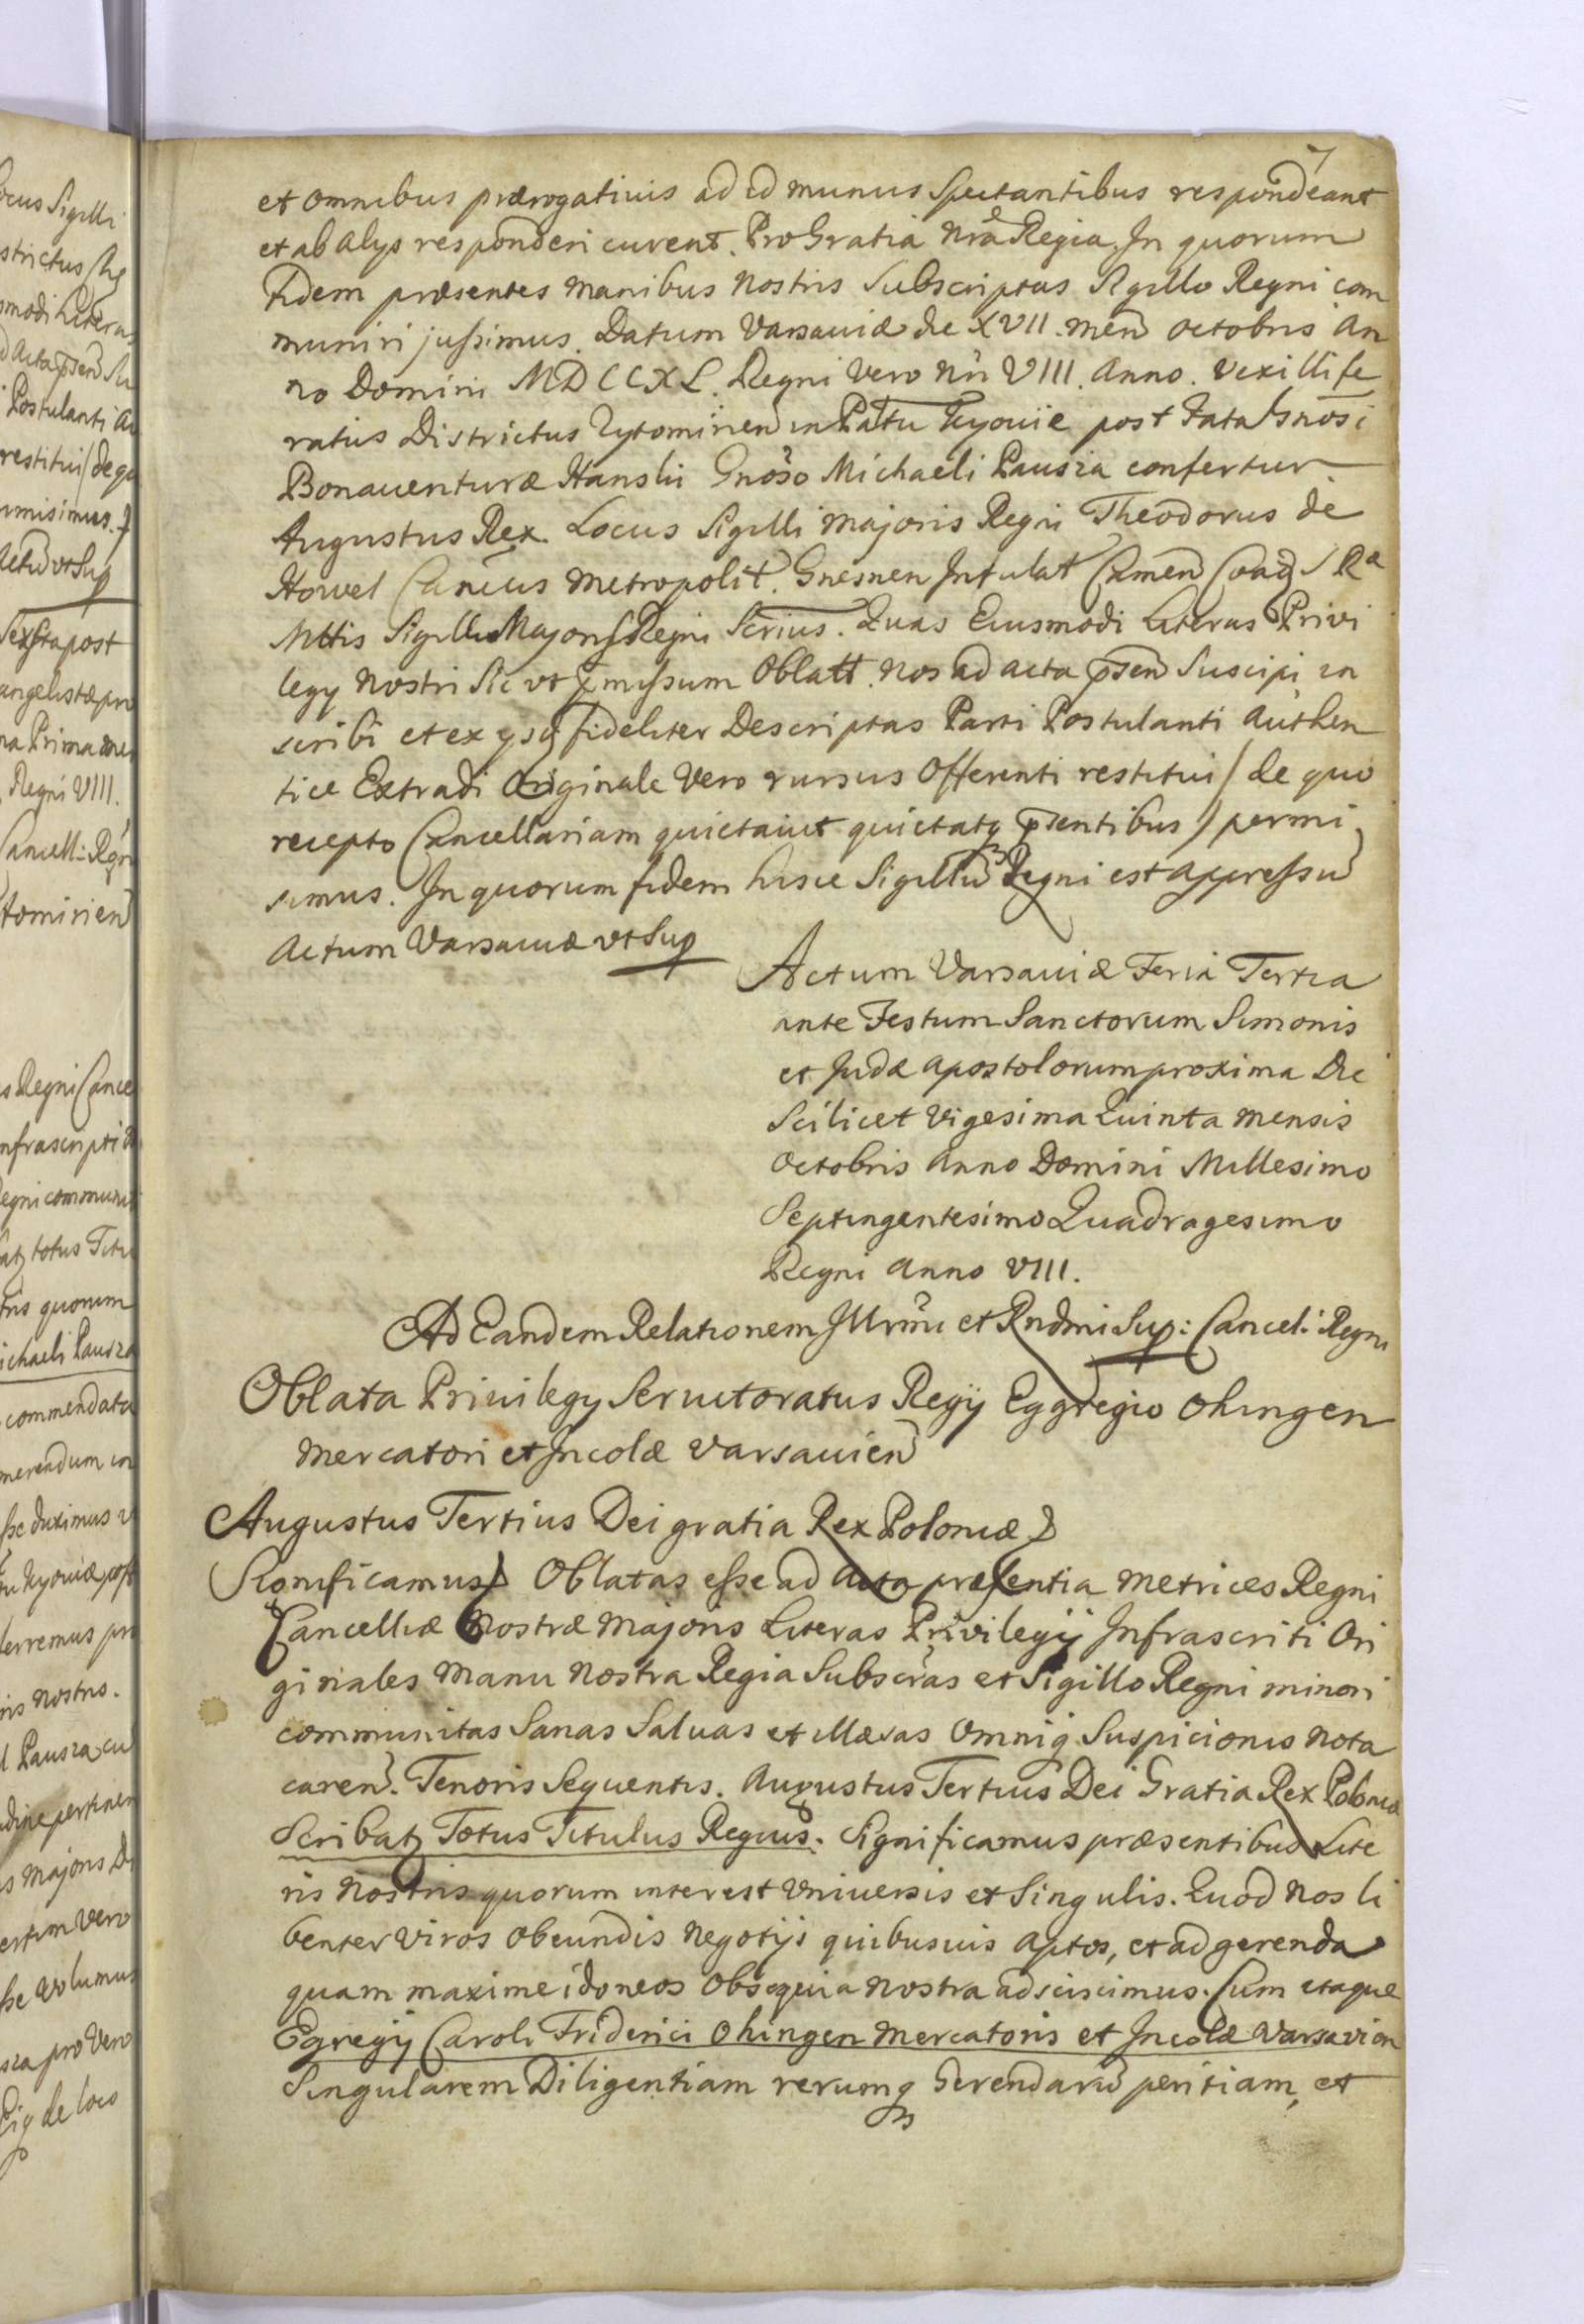 7
et omnibus prærogativis ad id munus Spectantibus respondeant
et ab alys responderi curent. Pro Gratia nrã Regia. In quorum
fidem præsentes manibus nostris Subscriptas Sigillo Regni com
muniri jussimus. Datum Varsaviæ die XVII. men octobris an
no Domini MDCCXL. Regni Vero nri VIII. Anno. Vexillife
ratus Districtus Zytomirien in Pãłtu Kyoviæ post Fata Gnosi
Bonaventuræ Hanski Gnoso Michaeli Pausza confertur
Augustus Rex. Locus Sigilli Majoris Regni Theodorus de
Howel Cancus Metropolit. Gnesnen Infulat Camen Coad S Ræ
Mttis Sigilli Majoris Regni Scrius. Quas Eiusmodi Literas Privi
legy Nostri Sic vt pmissum Oblatt. Nos ad acta psen Suscipi in
scribi et ex ysq fideliter Descriptas Parti Postulanti Authen
tice Extradi Originale Vero rursus Offerenti restitui / de quo
recepto Cancellariam quietavit quietatq psentibus / permi
simus. In quorum fidem hisce Sigillu Regni est appressu
Actum Varsaviæ vt Sup
Actum Varsaviæ Feria Tertia
ante Festum Sanctorum Simonis
et Judæ apostolorum proxima Die
Scilicet Vigesima Quinta Mensis
Octobris Anno Domini Millesimo
Septingentesimo Quadragesimo
Regni Anno VIII.
Ad Eandem Relationem Illrmi et Rndmi Sup: Cancel: Regni
Oblata Privilegy Servitoratus Regÿ Eggregio Ohingen
Mercatori et Incolæ Varsavien
Augustus Tertius Dei gratia Rex Poloniæ
Significamus Oblatas esse ad Acta præsentia Metrices Regni
Cancelliæ Nostræ Majoris Literas Privilegÿ Infrascriti Ori
ginales Manu Nostra Regia Subscras et Sigillo Regni minori
communitas Sanas Salvas et illæsas Omniq Suspicionis nota
caren. Tenoris Sequentis. Augustus Tertius Dei Gratia Rex Poloniæ
Scribat Totus Titulus Regius. Significamus præsentibus Lite
ris Nostris quorum interest Vniversis et Singulis. Quod Nos li
benter Viros Obeundis Negotÿs quibusuis aptos, et ad gerenda
quam maxime idoneos Obsequia nostra adsciscimus. Cum itaque
Egregÿ Caroli Friderici Ohingen Mercatoris et Incolæ Varsavien
Singularem Diligentiam rerumq Gerendaru peritiam, et